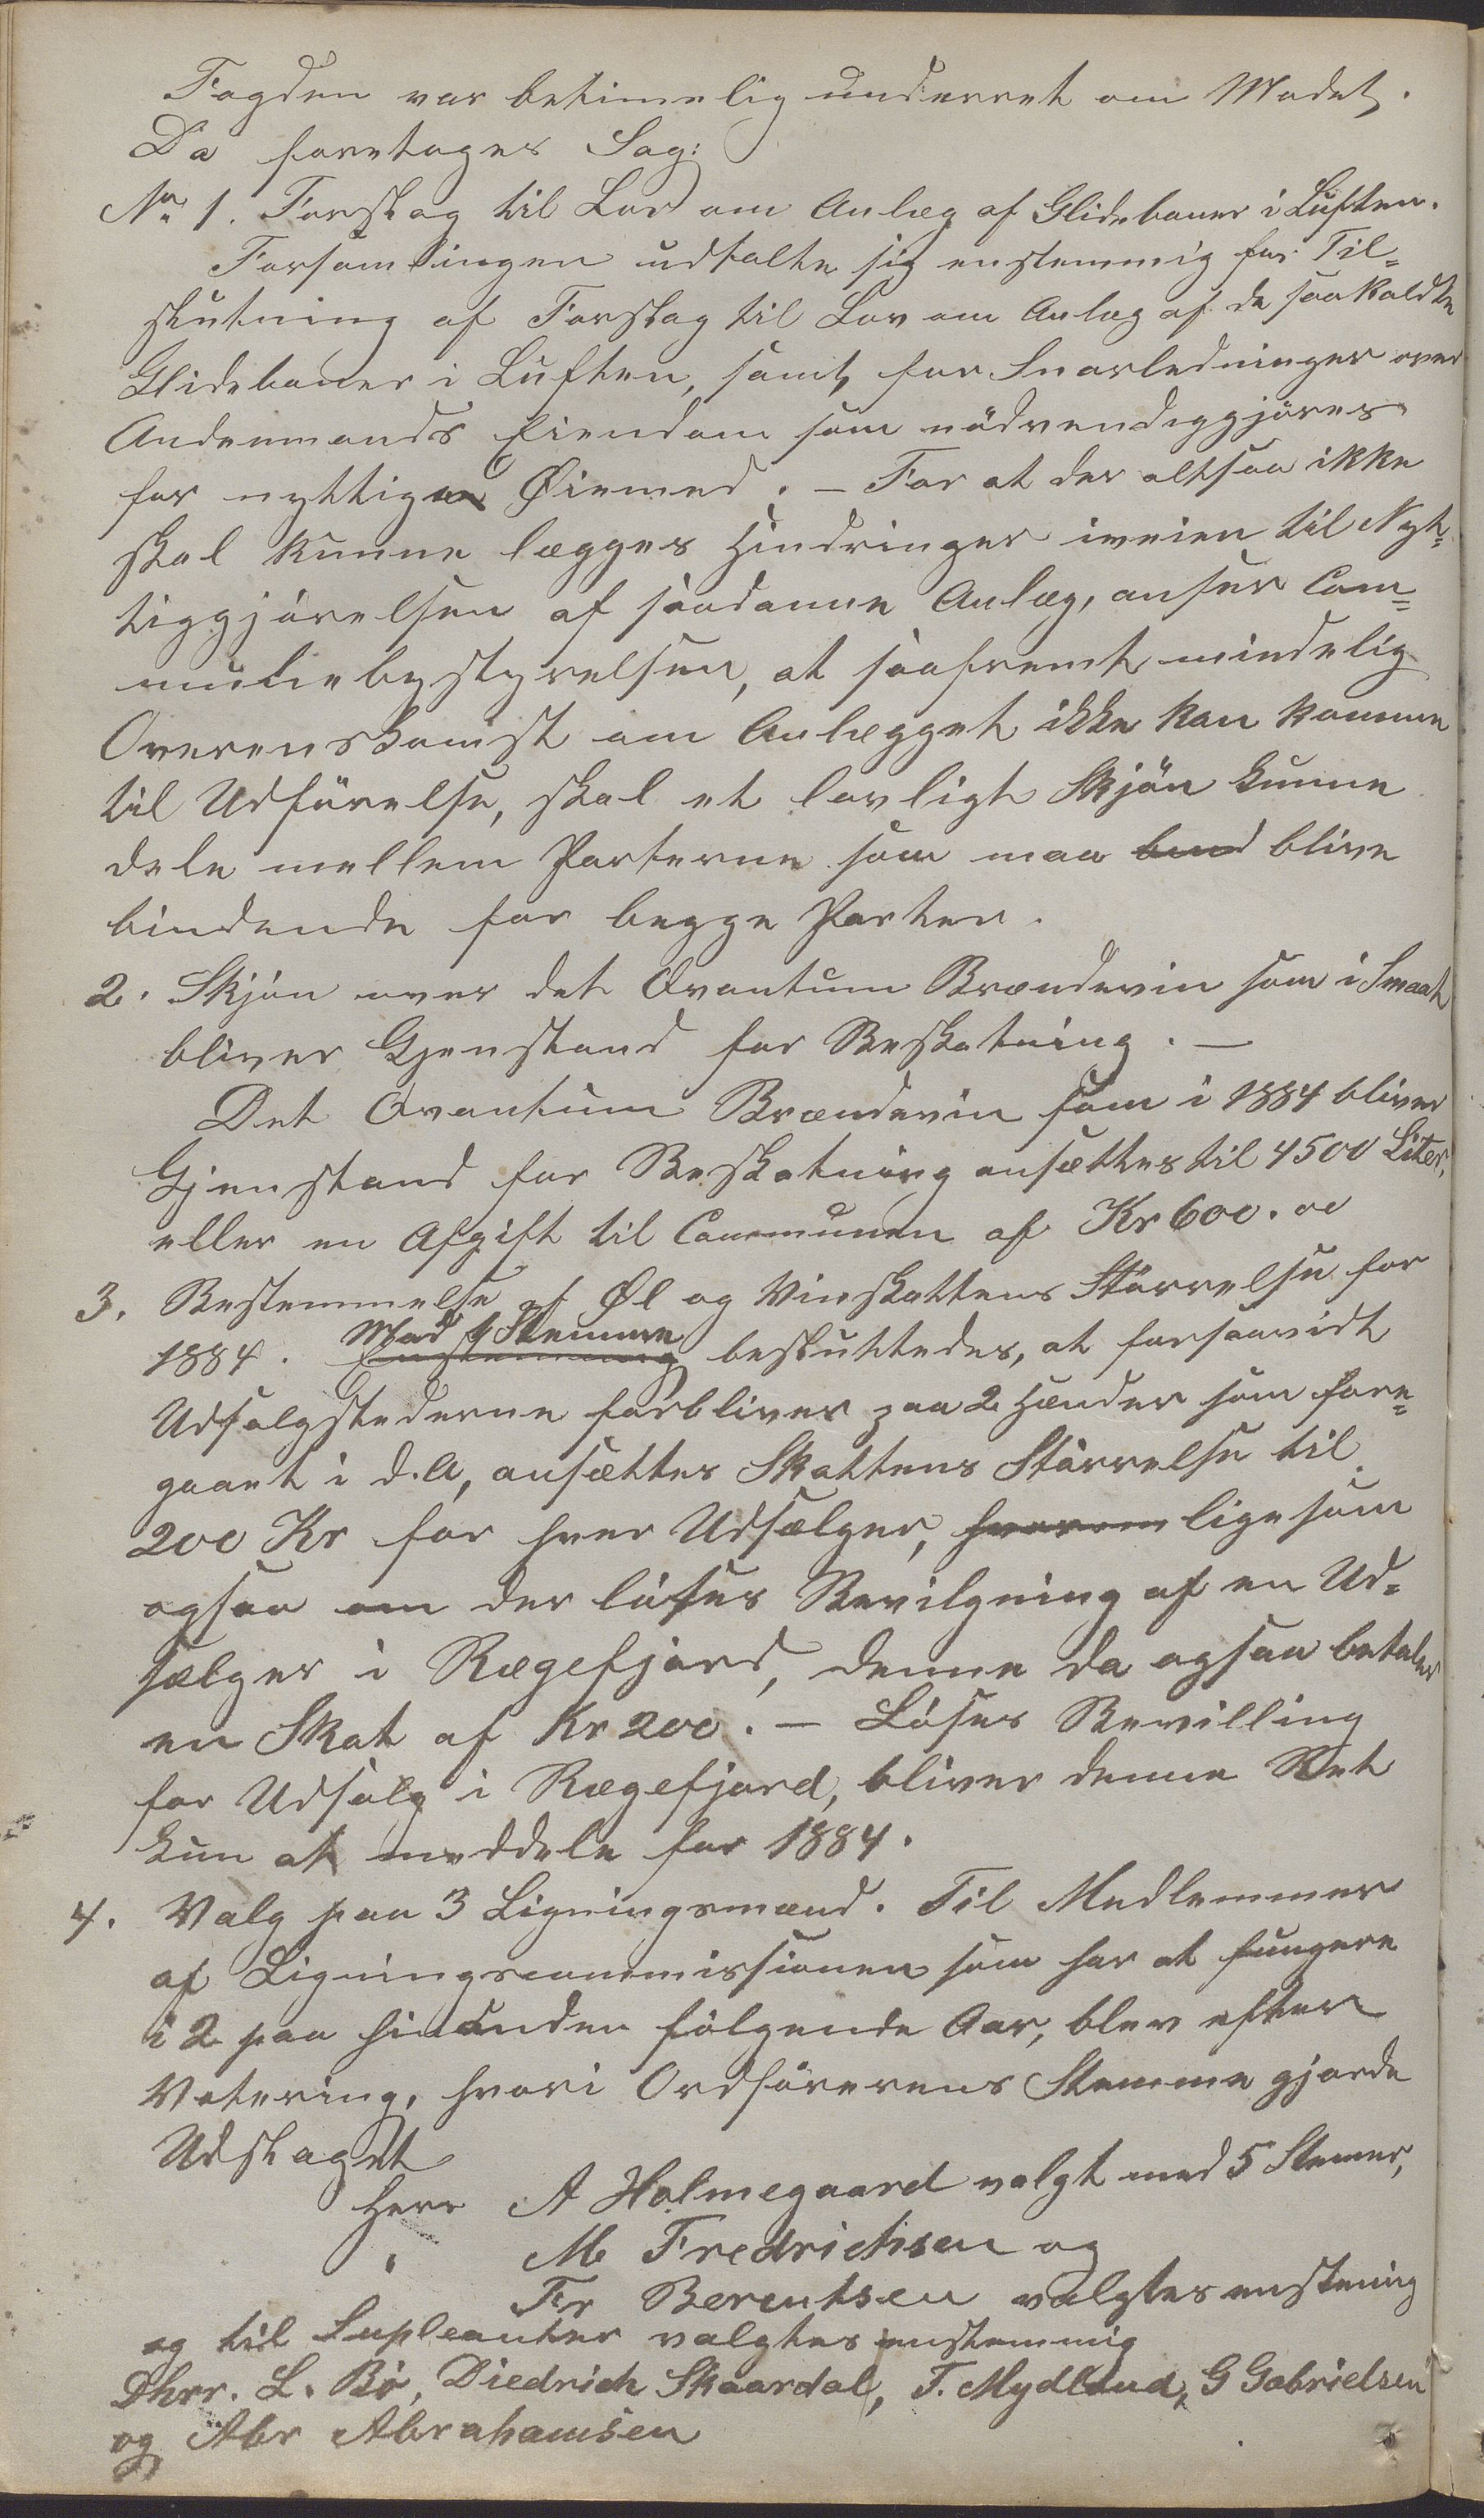 Fogden var betimelig underret om Mødet.
Da foretoges Sag:
No 1. Forslag til Lov om Anlæg af Glidebaner i Luften.
Forsamlingen udtalte sig enstemmig for Til=
slutning af Forslag til Lov om Anlæg af de saakaldte
Glidebaner i Luften, samt for Snorledninger over
Andenmands Eiendom som nödvendiggjöres
for nyttigen Øiemed. – For at der altsaa ikke
skal kunne lægges Hindringer iveien til Nyt=
tiggjörelsen af saadanne Anlæg, anser Com=
munebestyrelsen, at saafremt mindelig
Overenskomst om Anlægget ikke kan komme
til Udförelse, skal et lovligt Skjön kunne
dele mellem Parterne som maa bind blive
bindende for begge Parter.
2. Skjön over det Qvantum Brændevin som i Smaat
bliver Gjenstand for Beskatning. –
Det Qvantum Brændevin som i 1884 bliver
Gjenstand for Beskatning ansættes til 4500 Liter,
eller en Afgift til Communen af Kr 600.00
3. Bestemmelse af Øl og Vinskattens Störrelse for
Mod 1 Stemme
1884. Enstemmig besluttedes, at forsaavidt
Udsalgstederne forbliver paa 2 Hænder som fore=
gaaet i d.A, ansættes Skattens Störrelse til
200 Kr for hver Udsælger, hvorom ligesom
ogsaa om der löses Bevilgning af en Ud=
sælger i Rægefjord, denne da ogsaa betaler
en Skat af Kr 200. – Löses Bevilling
for Udsalg i Rægefjord, bliver denne Ret
kun at meddele for 1884.
4. Valg paa 3 Ligningsmænd. Til Medlemmer
af Ligningscommissionen som har at fungere
i 2 paa hinanden fölgende Aar, blev efter
Votering, hvori Ordförerens Stemme gjorde
Udslaget
Herr A Holmegaard valgt med 5 Stemer,
" M Fredrichsen og
Fr Berentsen valgtes enstemig
og til Supleanter valgtes enstemmig
Dhrr. L. Bö, Diedrich Skaardal, T. Mydland, G Gabrielsen
og Abr Abrahamsen